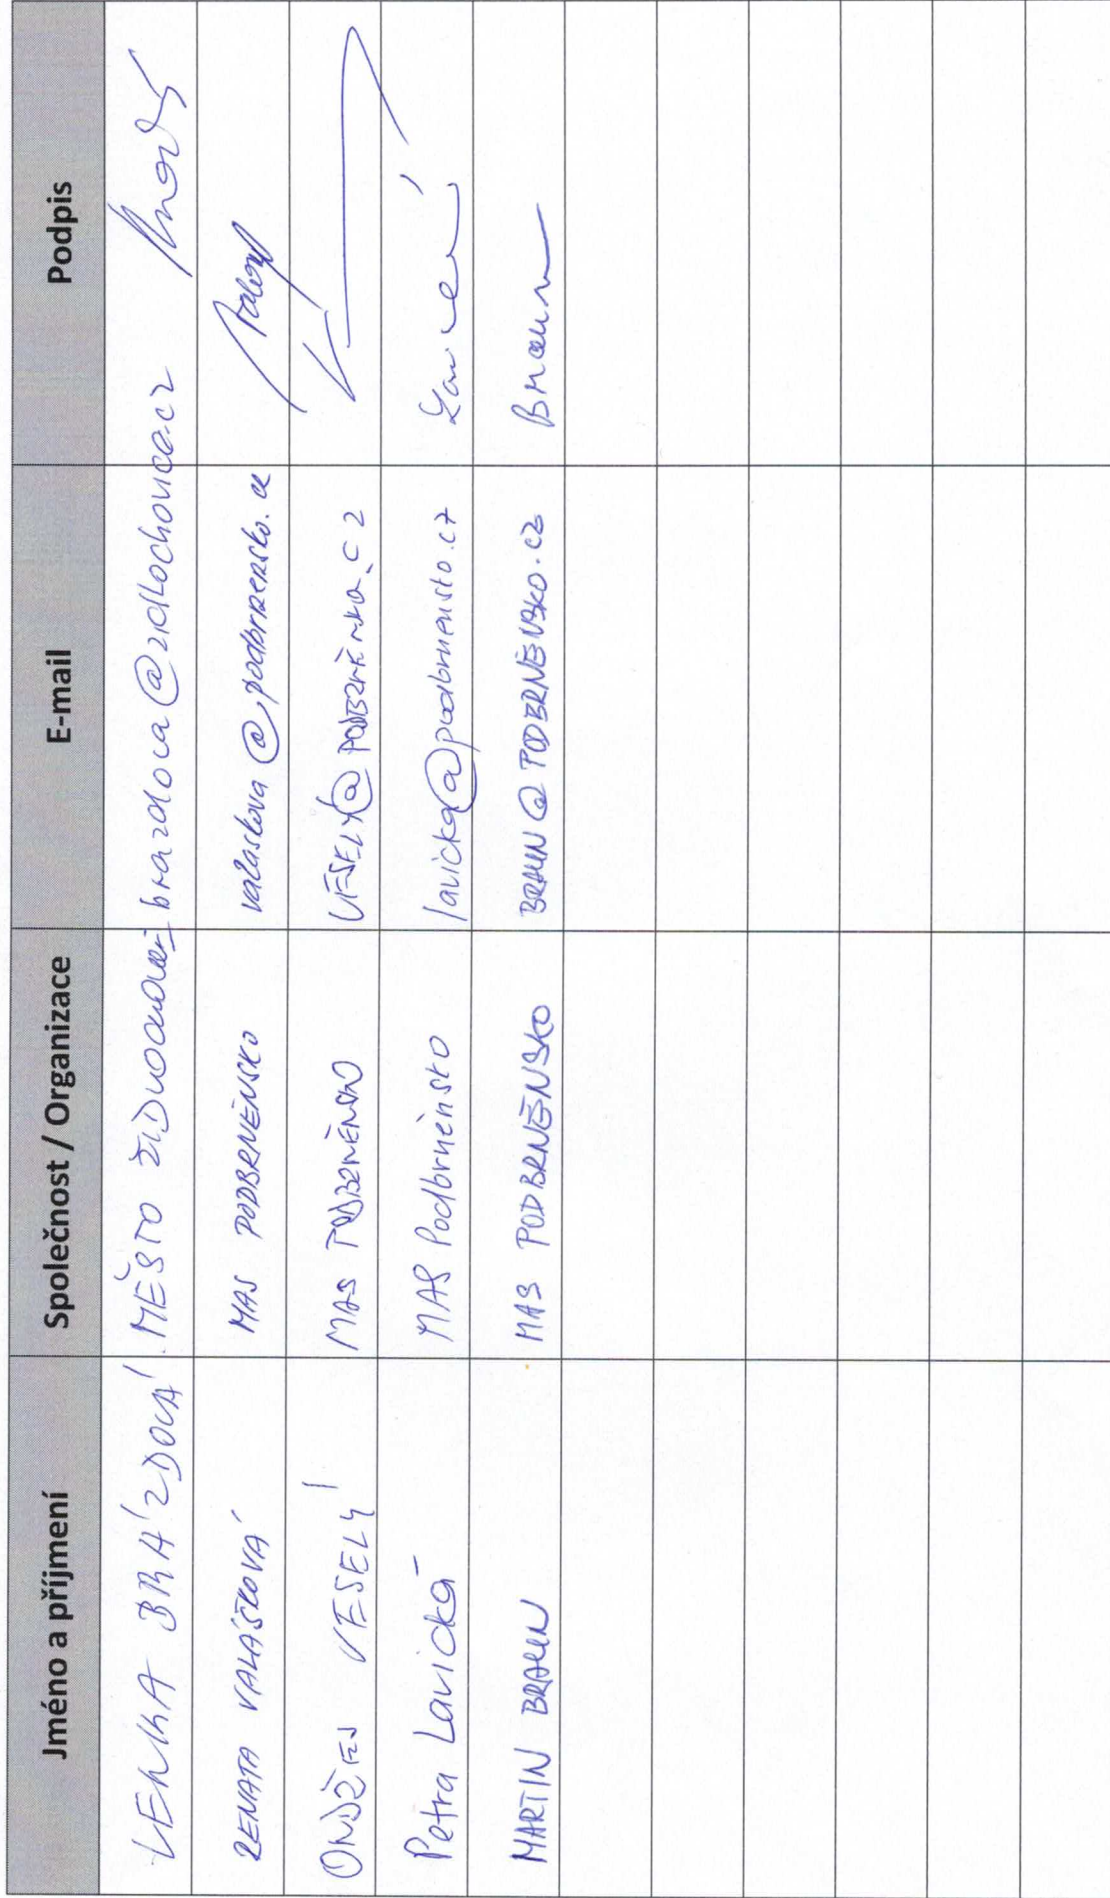 Jméno a příjmení Společnost / Organizace E-mail Podpis
LENKA BRÁZDOVÁ MĚSTO ŽIDLOCHOVICE brazdova@zidlochovice.cz
RENATA VALÁŠKOVÁ MAS PODBRNĚNSKO valaskova@podbrnensko.cz
ONDŘEJ VESELÝ MAS PODBRNĚNSKO VESELY@PODBRNĚNSKO.CZ
Petra Lavická MAS Podbrněnsko lavicka@podbrnensko.cz
MARTIN BRAUN MAS PODBRNĚNSKO BRAUN@PODBRNĚNSKO.CZ Braun